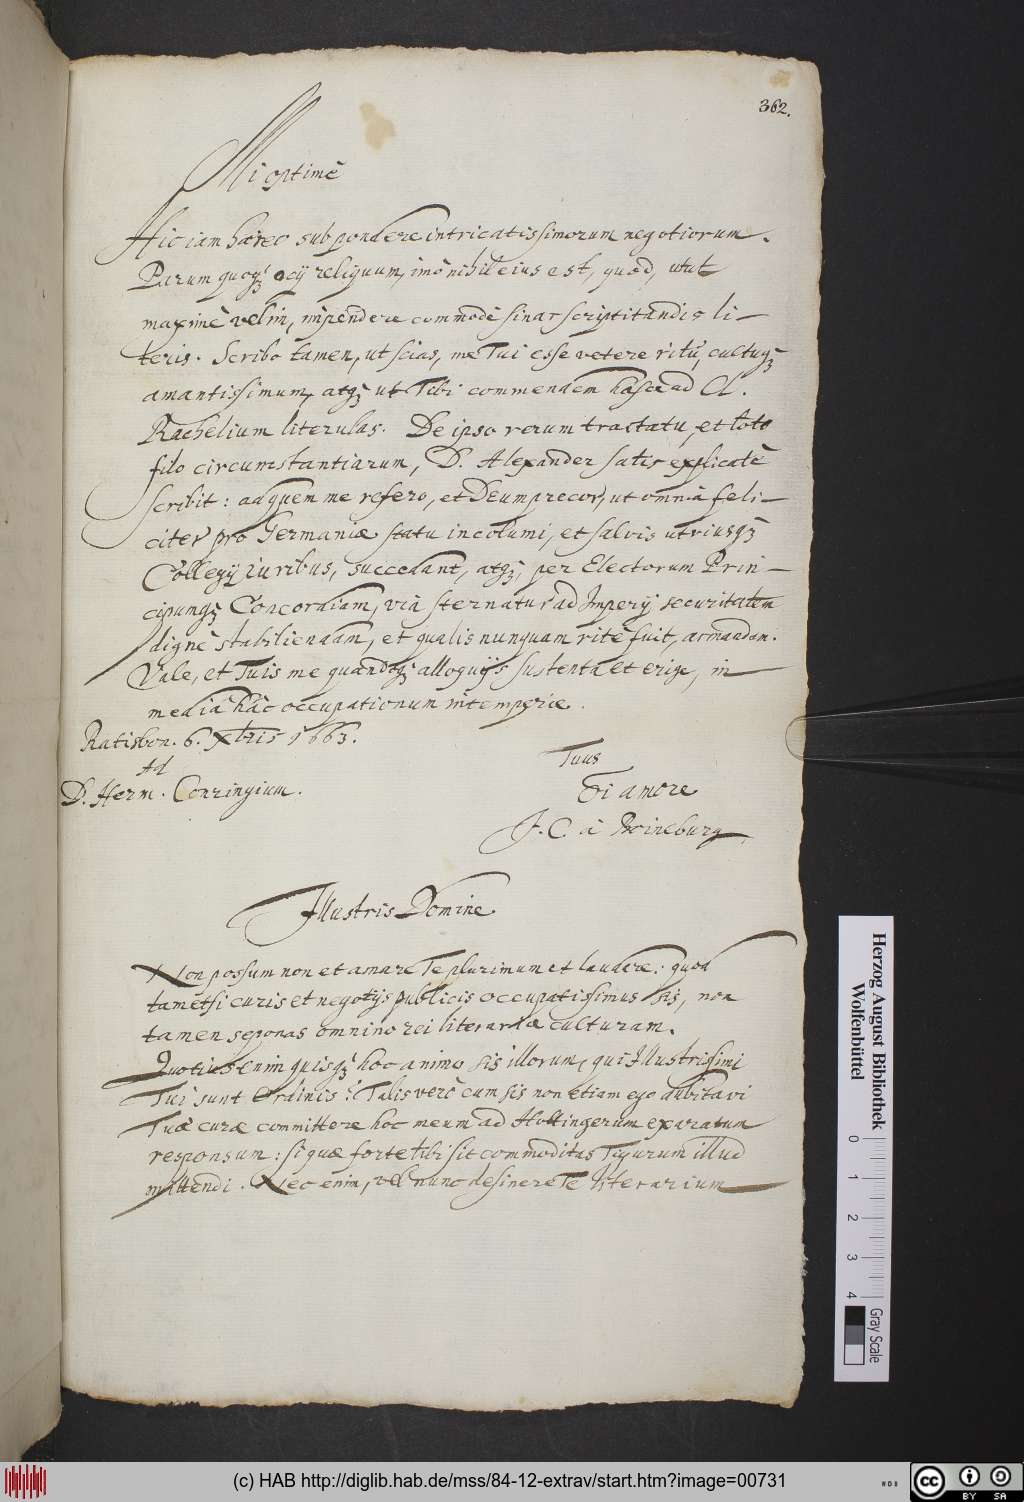 362.
Mi optimè
Hic iam haereo sub pondere intricatissimorum negotiorum.
Parum quoq; ocij reliquum, imò nihil eius est, quod, utut
maximè velim, impendere commodè sinar scriptitandis li-
teris. Scribo tamen, ut scias, me Tui esse vetere ritu, cultuq;
amantissimum, atq; ut Tibi commendem hasce ad Cl.
Rachelium literulas. De ipso rerum tractatu, et toto
filo circumstantiarum, D. Alexander satis explicatè
scribit: ad quem me refero, et Deum precor, ut omnia feli-
citer pro Germaniae statu incolumi, et salvis utriusq;
Collegij iuribus, succedant, atq;, per Electorum Prin-
cipumq; Concordiam, via sternatur ad Imperij securitatem
dignè stabiliendam, et qualis nunquam ritè fuit, armandam.
Vale, et Tuis me quandoq; alloquijs sustenta et erige, in
media hâc occupationum intemperie.
Ratisbon. 6. Xbris 1663.
Tuus
Ad
D. Herm. Conringium.
Ex amore
J. C. à Boineburg
Illustris Domine
Non possum non et amare Te plurimum et laudare: quod
tametsi curis et negotijs publicis occupatissimus sis, non
tamen seponas omnino rei literariae culturam.
Quotus enim quisq; hoc animo sis illorum, qui Illustrissimi
Tui sunt Ordinis? Talis verò cum sis non etiam ego dubitavi
Tuae curae committere hoc meum ad Hottingerum exaratum
responsum: si quae forte tibi sit commoditas Tigurum illud
mittendi. Nec enim, vel nunc desinere Te literarium
Herzog August Bibliothek
Wolfenbüttel
0 1 2 3 4
Gray Scale
(c) HAB http://diglib.hab.de/mss/84-12-extrav/start.htm?image=00731
cc BY SA